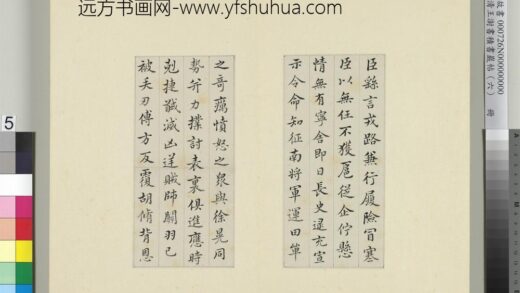 远方书画网-www.yfshuhua.com
臣繇言戎路兼行履險冒寒
臣以無任不獲扈從企佇懸
情無有寧舍即日長史逯充宣
示令命知征南將軍運田單
之奇厲憤怒之眾與徐晃同
勢并力撲討表裏俱進應時
剋捷馘滅凶逆賊帥關羽已
被矢刃傅方反覆胡脩背恩
故書 000726N000000000
清王澍書積書巖帖(六) 冊
5